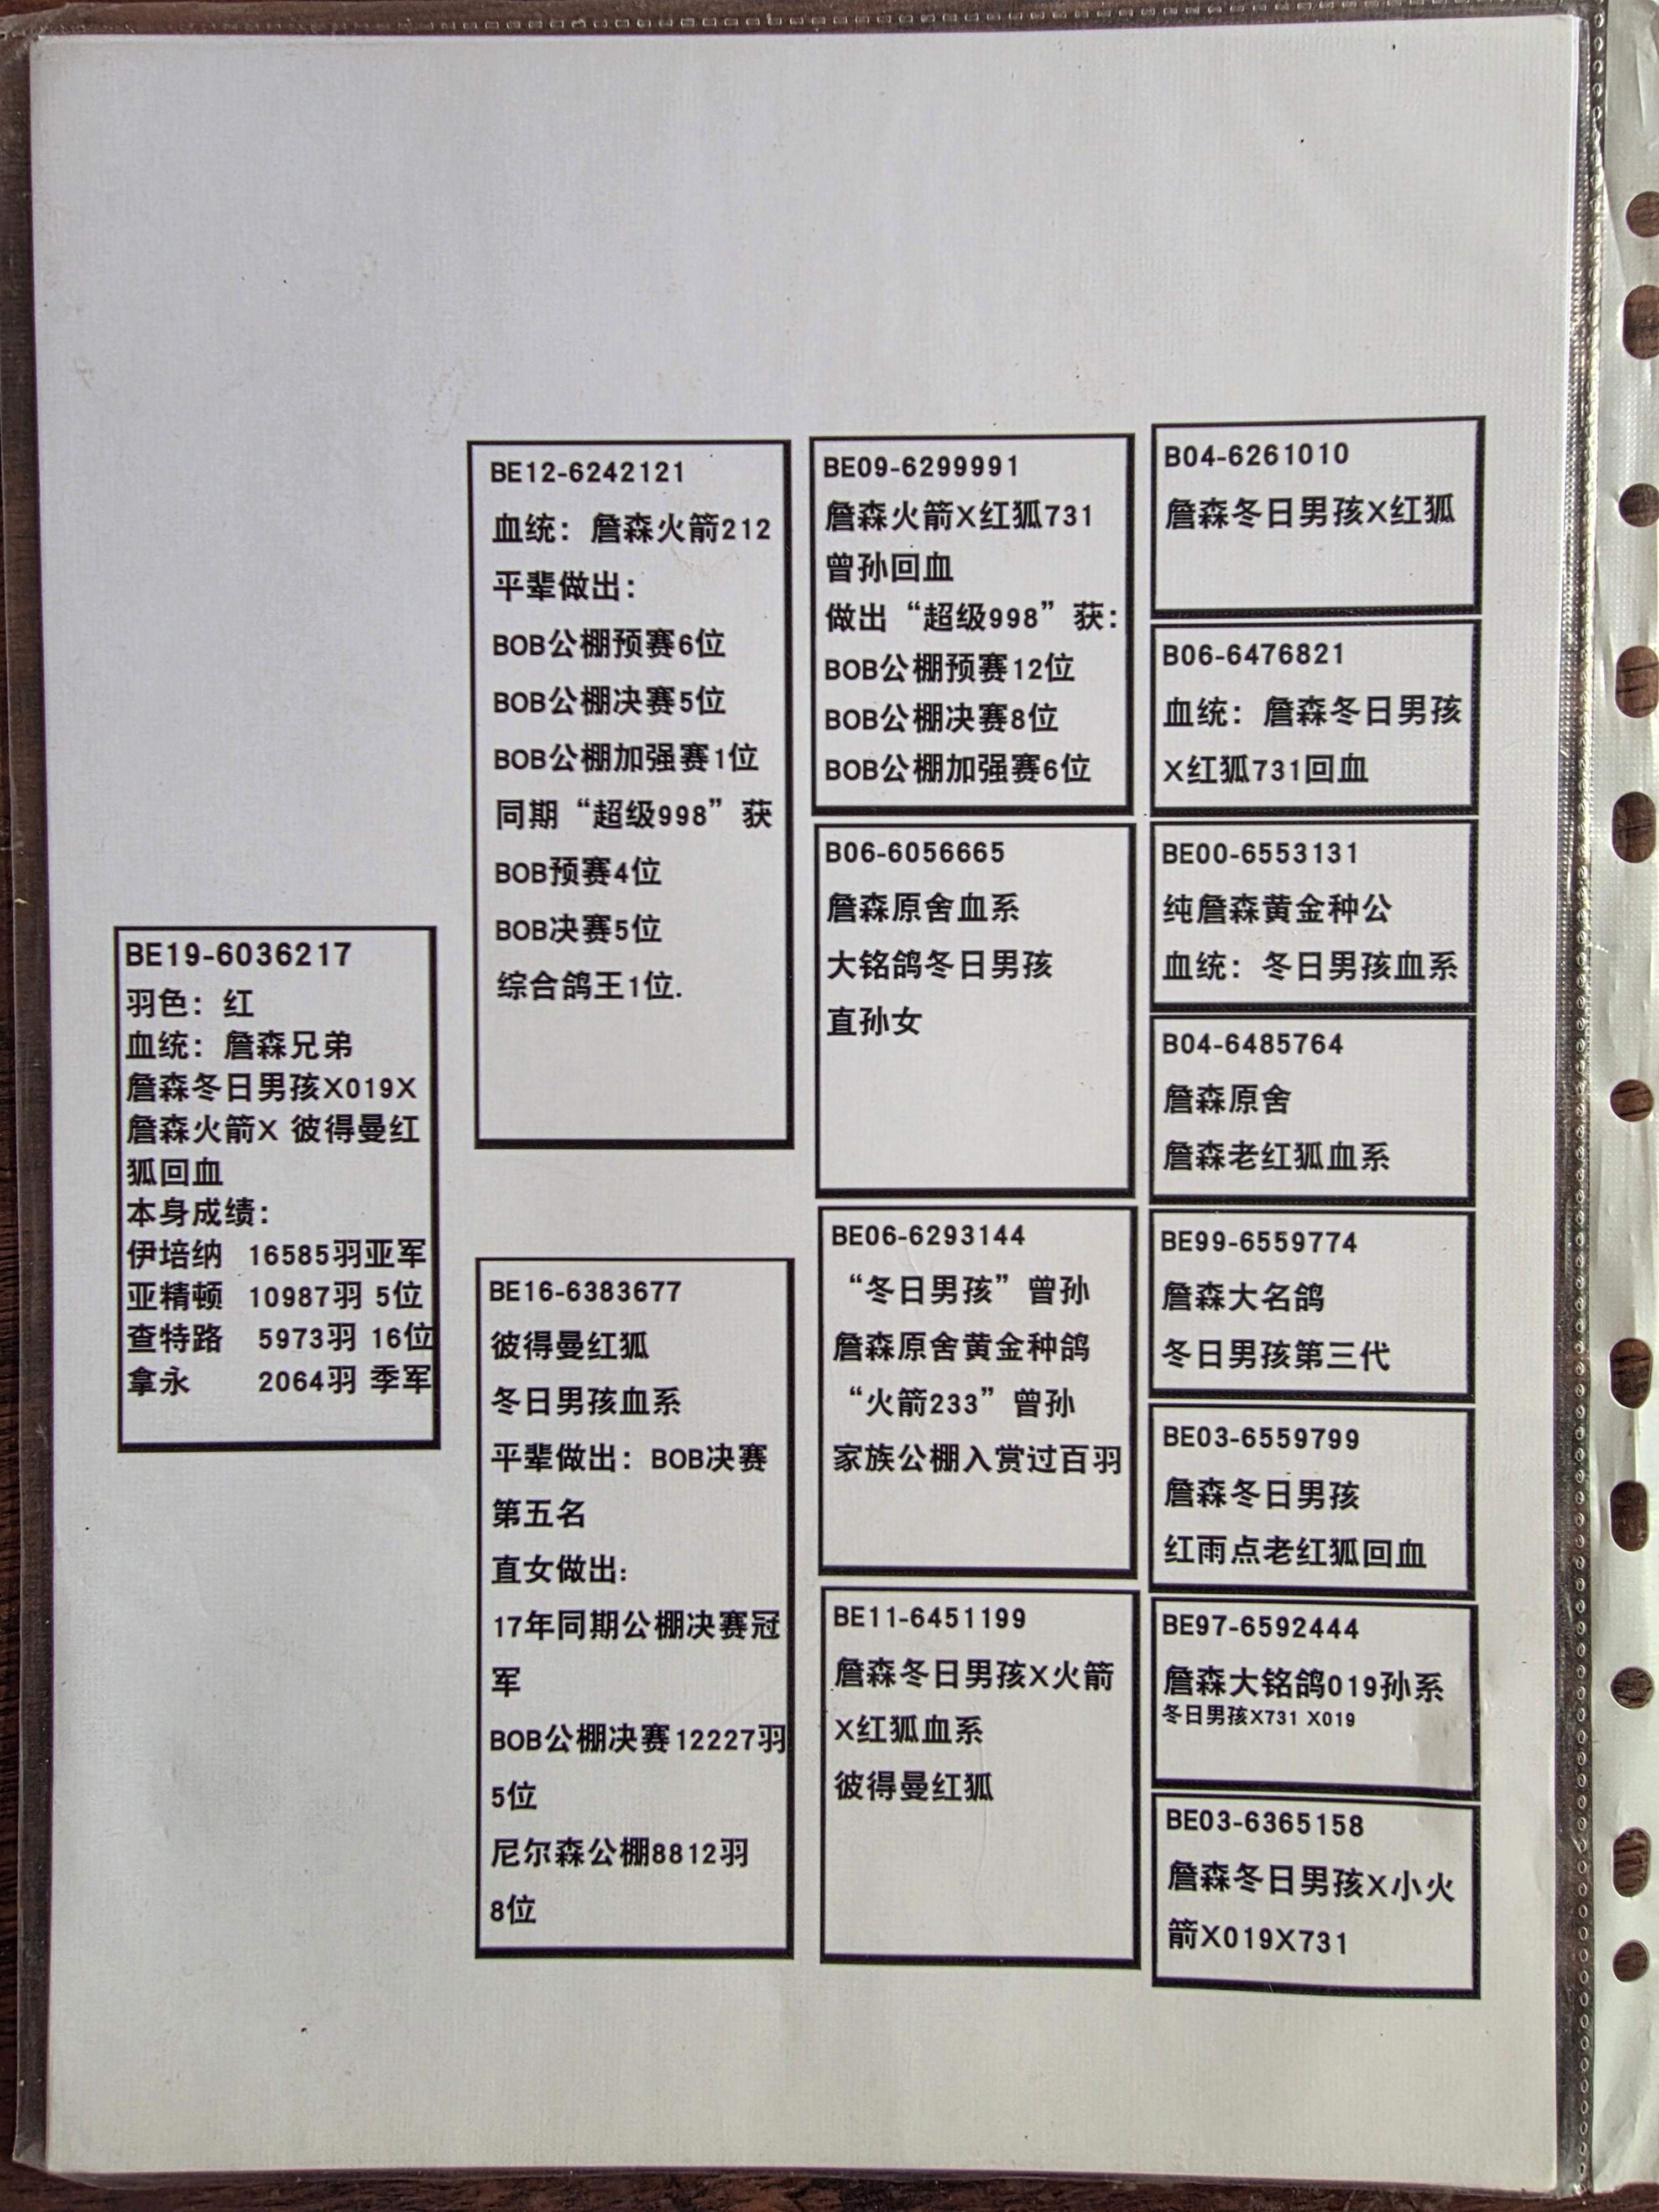 BE19-6036217
羽色：红
血统：詹森兄弟
詹森冬日男孩X019X
詹森火箭X 彼得曼红
狐回血
本身成绩：
伊培纳 16585羽亚军
亚精顿 10987羽 5位
查特路 5973羽 16位
拿永 2064羽 季军
BE12-6242121
血统：詹森火箭212
平辈做出：
BOB公棚预赛6位
BOB公棚决赛5位
BOB公棚加强赛1位
同期“超级998”获
BOB预赛4位
BOB决赛5位
综合鸽王1位.
BE16-6383677
彼得曼红狐
冬日男孩血系
平辈做出：BOB决赛
第五名
直女做出：
17年同期公棚决赛冠
军
BOB公棚决赛12227羽
5位
尼尔森公棚8812羽
8位
BE09-6299991
詹森火箭X红狐731
曾孙回血
做出“超级998”获：
BOB公棚预赛12位
BOB公棚决赛8位
BOB公棚加强赛6位
B06-6056665
詹森原舍血系
大铭鸽冬日男孩
直孙女
BE06-6293144
“冬日男孩”曾孙
詹森原舍黄金种鸽
“火箭233”曾孙
家族公棚入赏过百羽
BE11-6451199
詹森冬日男孩X火箭
X红狐血系
彼得曼红狐
B04-6261010
詹森冬日男孩X红狐
B06-6476821
血统：詹森冬日男孩
X红狐731回血
BE00-6553131
纯詹森黄金种公
血统：冬日男孩血系
B04-6485764
詹森原舍
詹森老红狐血系
BE99-6559774
詹森大名鸽
冬日男孩第三代
BE03-6559799
詹森冬日男孩
红雨点老红狐回血
BE97-6592444
詹森大铭鸽019孙系
冬日男孩X731 X019
BE03-6365158
詹森冬日男孩X小火
箭X019X731